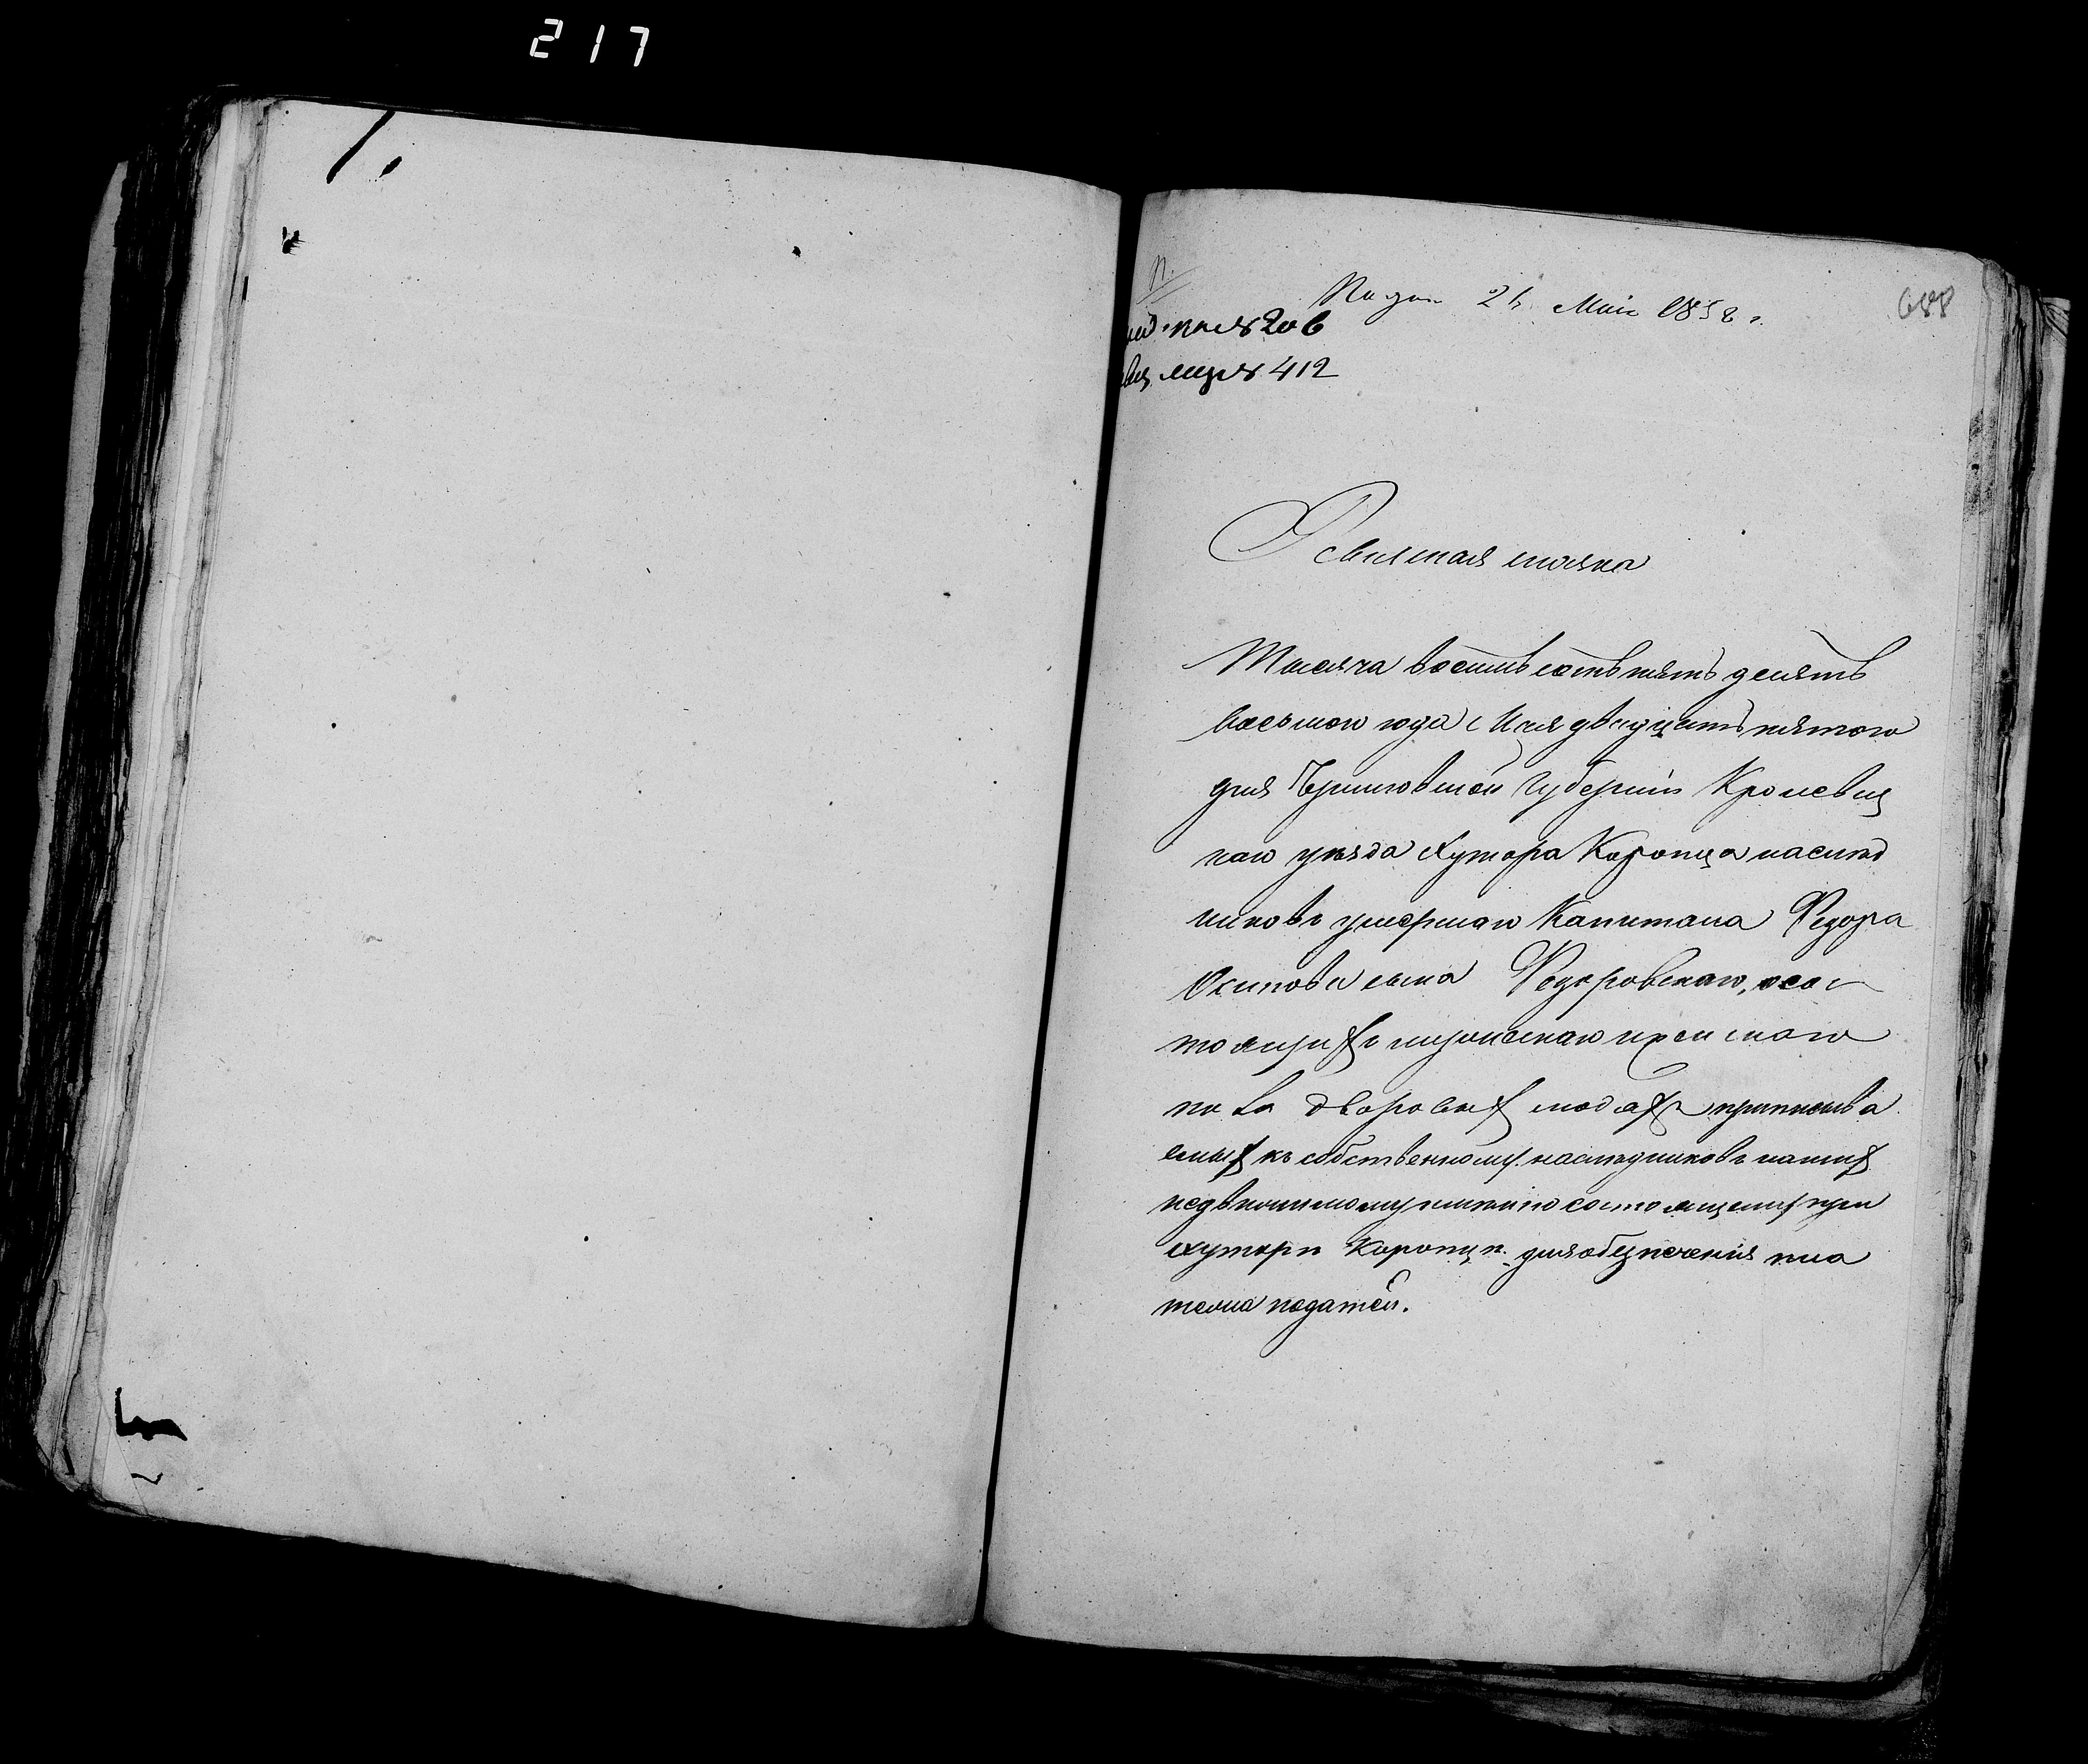 217
688
Подан 2 Маія 1858 г.
206
412
Ревизская сказка
Тысяча восемь сотъ пять десятъ
восьмого года Мая двадцать пятого
дня Черниговской Губерніи Кролевец
каго уѣзда Хутора Коропца наслѣд
никовъ умершаго Капитана Федора
Осипова сына Федоровскаго, о сос
тоящихъ мужескаго и женскаго
пола дворовыхъ людяхъ приписыва
емыхъ къ собственному наслѣдниковъ нашихъ
недвижимому имѣнію состоящему при
хуторѣ Коропцѣ для обезпеченія пла
тежа податей.